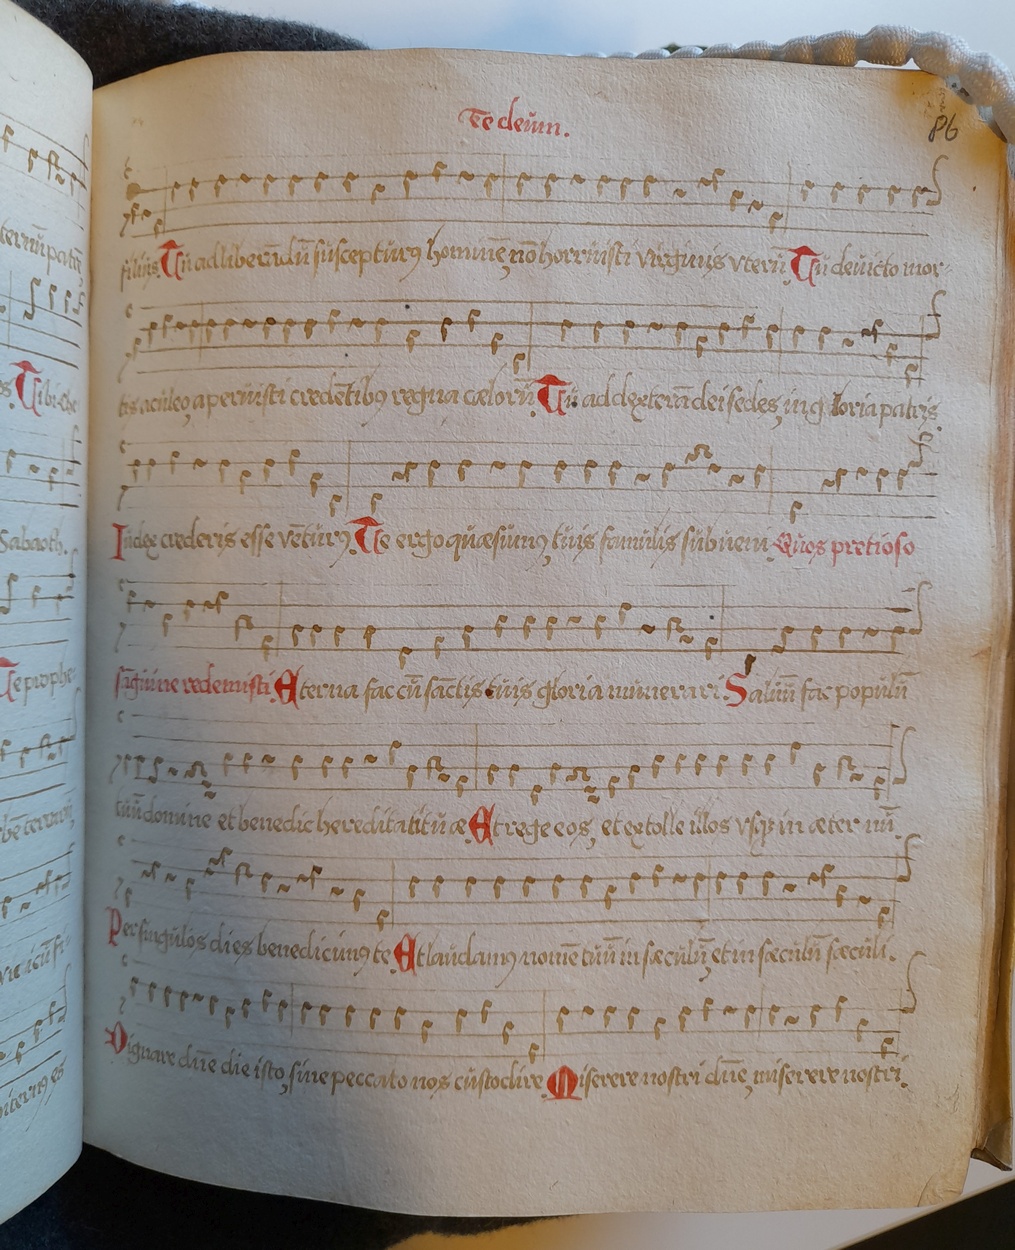 Te deūm.
86
filius Tu ad liberādū suscepturꝯ hominē, nō horruisti virginis vterū Tu deuicto mor-
tis aculeo, aperuisti credētibꝯ regna cælorū Tu ad dexterā dei sedes, in gloria patris.
Iudex crederis esse vēturꝯ. Te ergo quæsumꝯ, tuis famulis subueni Quos pretioso
sāguine redemisti Æterna fac cū sāctis tuis gloria munerari Saluū fac populū
tuū domine et benedic hereditati tuæ Et rege eos, et extolle illos vsqꝫ in æternū.
Per singulos dies benedicimꝯ te Et laudamꝯ nomē tuū in sæculū, et in sæculū sæculi.
Dignare dn̄e die isto, sine peccato nos custodire Miserere nostri dn̄e, miserere nostri.
ternū patē
Tibi che
Sabaoth.
Te prophe